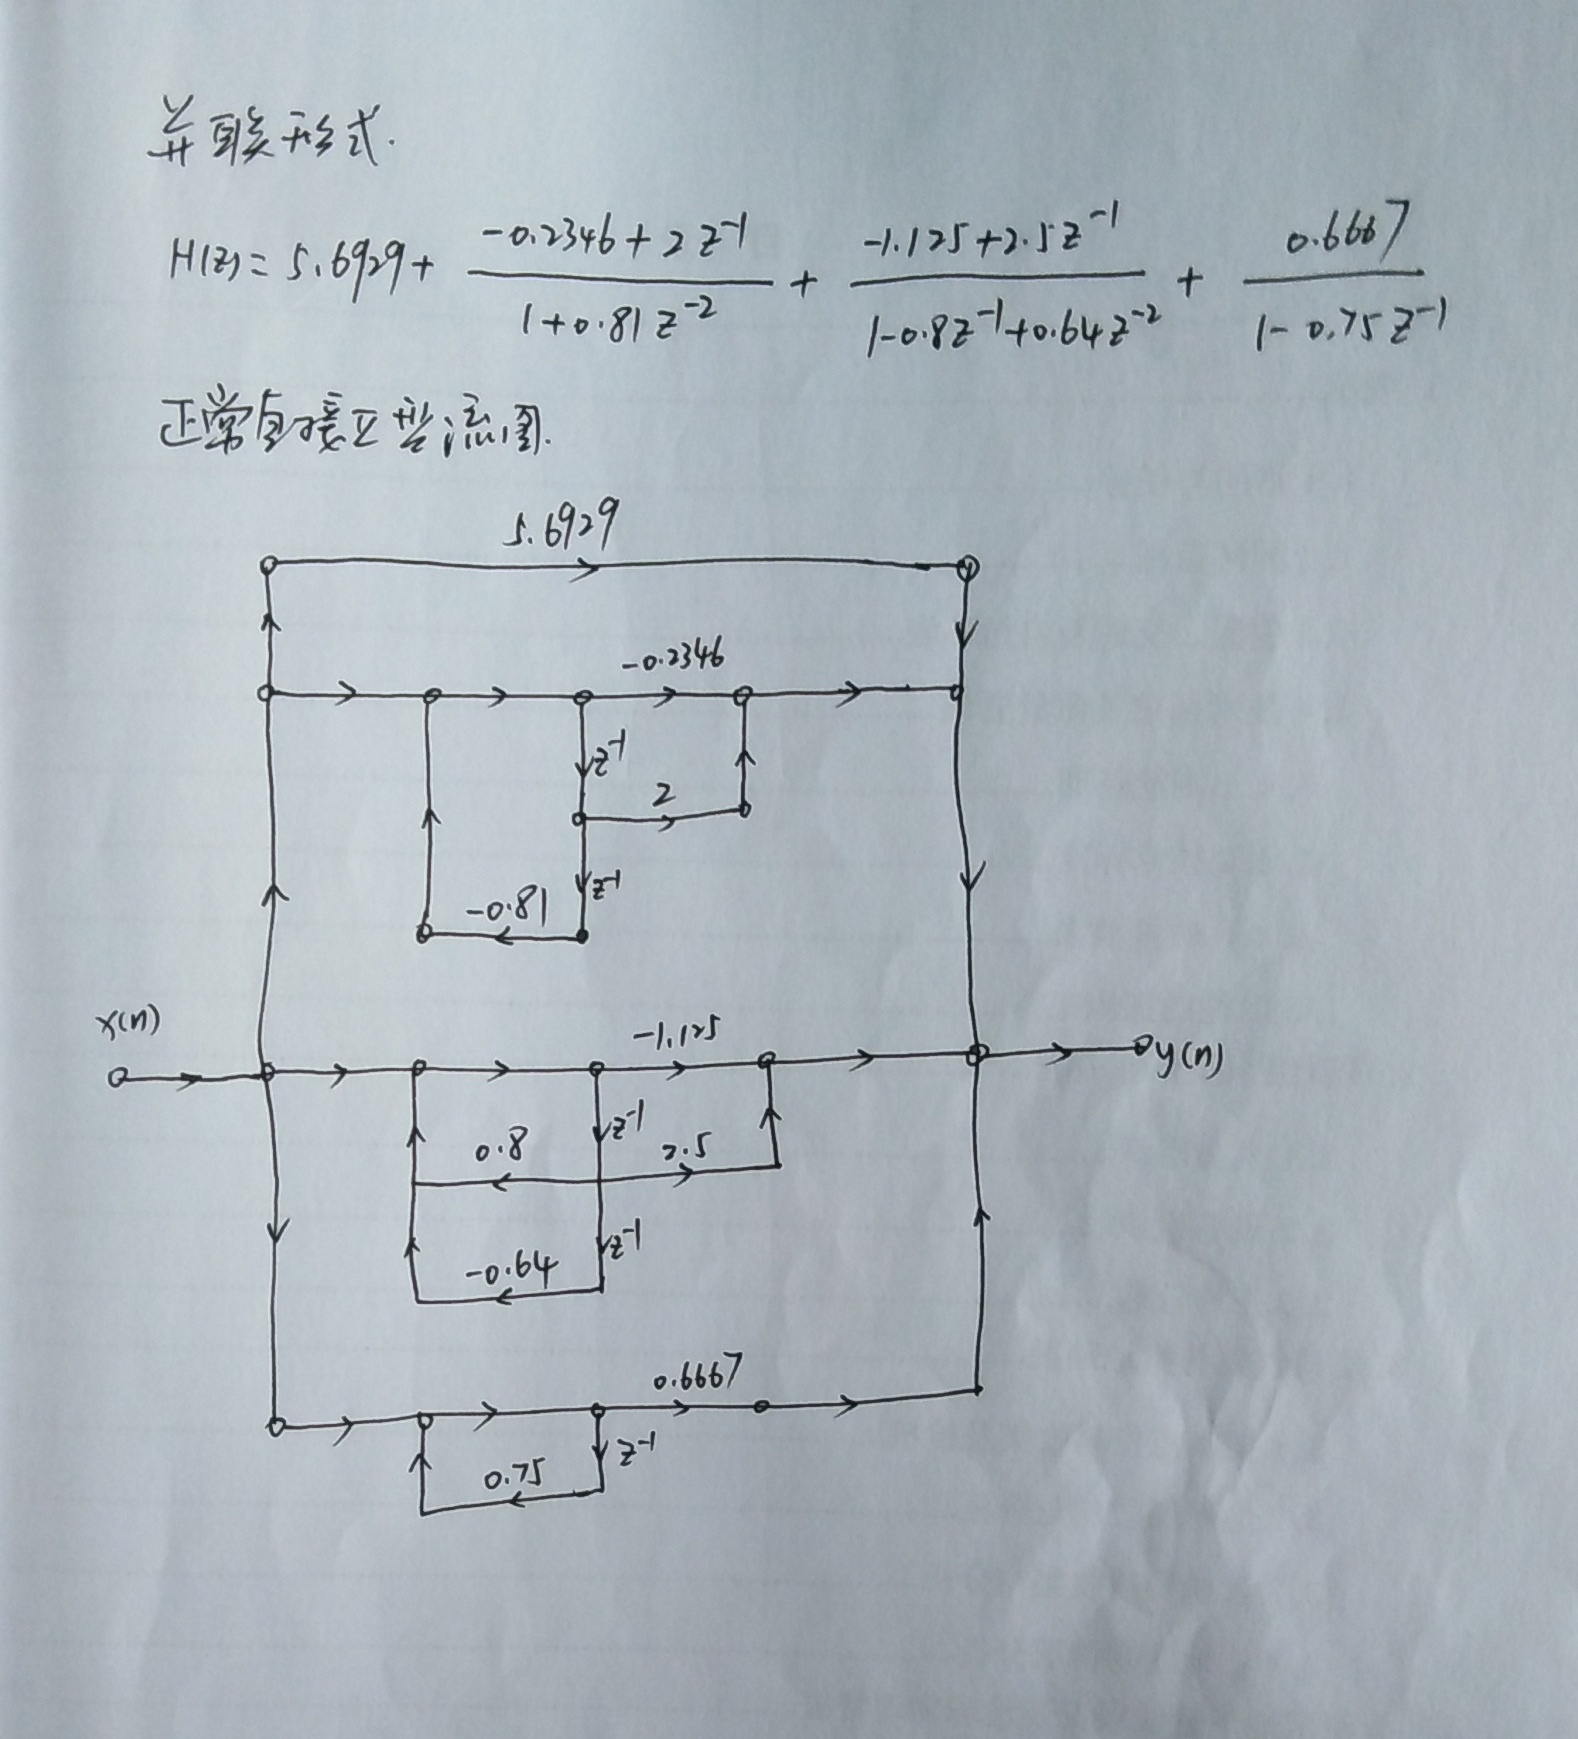 并联形式.
H(z) = 5.6929 + (-0.2346 + 2z⁻¹)/(1 + 0.81z⁻²) + (-1.125 + 2.5z⁻¹)/(1 - 0.8z⁻¹ + 0.64z⁻²) + 0.6667/(1 - 0.75z⁻¹)
正常直接II型流图.
5.6929
-0.2346
z⁻¹
2
z⁻¹
-0.81
x(n)
-1.125
y(n)
z⁻¹
0.8
2.5
z⁻¹
-0.64
0.6667
z⁻¹
0.75